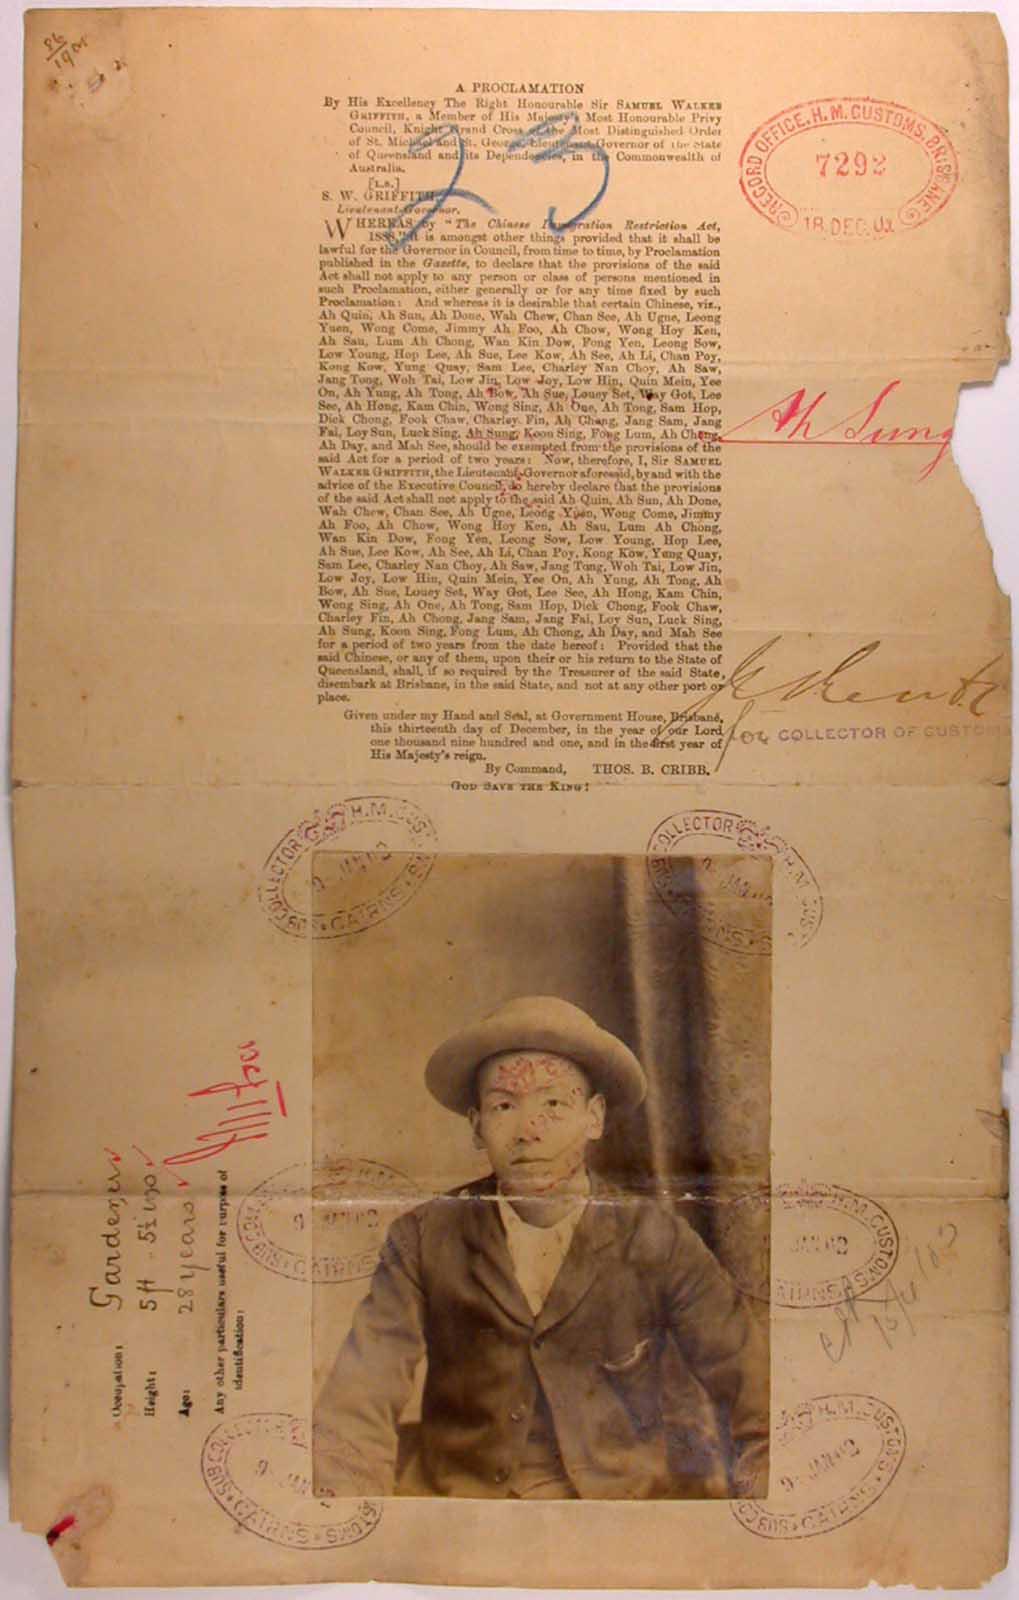 86
A PROCLAMATION
By His Excellency The Right Honourable Sir SAMUEL WALKER
GRIFFITH, a Member of His Majesty's Most Honourable Privy
Council, Knight Grand Cross of the Most Distinguished Order
of St. Michael and St. George, Lieutenant-Governor of the State
of Queensland and its Dependencies, in the Commonwealth of
Australia.
[L.S.]
S. W. GRIFFITH,
Lieutenant-Governor.
23
RECORD OFFICE, H. M. CUSTOMS, BRISBANE
7292
18. DEC. 01
WHEREAS by "The Chinese Immigration Restriction Act,
1888," it is amongst other things provided that it shall be
lawful for the Governor in Council, from time to time, by Proclamation
published in the Gazette, to declare that the provisions of the said
Act shall not apply to any person or class of persons mentioned in
such Proclamation, either generally or for any time fixed by such
Proclamation: And whereas it is desirable that certain Chinese, viz.,
Ah Quin, Ah Sun, Ah Done, Wah Chew, Chan See, Ah Ugne, Leong
Yuen, Wong Come, Jimmy Ah Foo, Ah Chow, Wong Hoy Ken,
Ah Sau, Lum Ah Chong, Wan Kin Dow, Fong Yen, Leong Sow,
Low Young, Hop Lee, Ah Sue, Lee Kow, Ah See, Ah Li, Chan Poy,
Kong Kow, Yung Quay, Sam Lee, Charley Nan Choy, Ah Saw,
Jang Tong, Woh Tai, Low Jin, Low Joy, Low Hin, Quin Mein, Yee
On, Ah Yung, Ah Tong, Ah Bow, Ah Sue, Louey Set, Way Got, Lee
See, Ah Hong, Kam Chin, Wong Sing, Ah One, Ah Tong, Sam Hop,
Dick Chong, Fook Chaw, Charley Fin, Ah Chong, Jang Sam, Jang
Fai, Loy Sun, Luck Sing, Ah Sung, Koon Sing, Fong Lum, Ah Chong,
Ah Day, and Mah See, should be exempted from the provisions of the
said Act for a period of two years: Now, therefore, I, Sir SAMUEL
WALKER GRIFFITH, the Lieutenant-Governor aforesaid, by and with the
advice of the Executive Council, do hereby declare that the provisions
of the said Act shall not apply to the said Ah Quin, Ah Sun, Ah Done,
Wah Chew, Chan See, Ah Ugne, Leong Yuen, Wong Come, Jimmy
Ah Foo, Ah Chow, Wong Hoy Ken, Ah Sau, Lum Ah Chong,
Wan Kin Dow, Fong Yen, Leong Sow, Low Young, Hop Lee,
Ah Sue, Lee Kow, Ah See, Ah Li, Chan Poy, Kong Kow, Yung Quay,
Sam Lee, Charley Nan Choy, Ah Saw, Jang Tong, Woh Tai, Low Jin,
Low Joy, Low Hin, Quin Mein, Yee On, Ah Yung, Ah Tong, Ah
Bow, Ah Sue, Louey Set, Way Got, Lee See, Ah Hong, Kam Chin,
Wong Sing, Ah One, Ah Tong, Sam Hop, Dick Chong, Fook Chaw,
Charley Fin, Ah Chong, Jang Sam, Jang Fai, Loy Sun, Luck Sing,
Ah Sung, Koon Sing, Fong Lum, Ah Chong, Ah Day, and Mah See
for a period of two years from the date hereof: Provided that the
said Chinese, or any of them, upon their or his return to the State of
Queensland, shall, if so required by the Treasurer of the said State,
disembark at Brisbane, in the said State, and not at any other port or
place.
Ah Sung
Given under my Hand and Seal, at Government House, Brisbane,
this thirteenth day of December, in the year of our Lord
one thousand nine hundred and one, and in the first year of
His Majesty's reign.
By Command, THOS. B. CRIBB.
GOD SAVE THE KING!
for COLLECTOR OF CUSTOMS
SUB COLLECTOR H.M. CUS
9 JAN 02
CAIRNS
SUB COLLECTOR H.M. CUS
9 JAN 02
CAIRNS
Occupation: Gardener
Height: 5 ft 5½ ins
Age: 28 years
Any other particulars useful for purpose of
identification:
SUB COLL H.M.
9 JAN 02
CAIRNS
H.M. CUSTOMS
JAN 02
CAIRNS
SUB COLLECTOR
9- JAN 02
CUSTOMS CAIRNS
SUB COLLECTOR H.M. CUSTOMS
9- JAN 02
CAIRNS